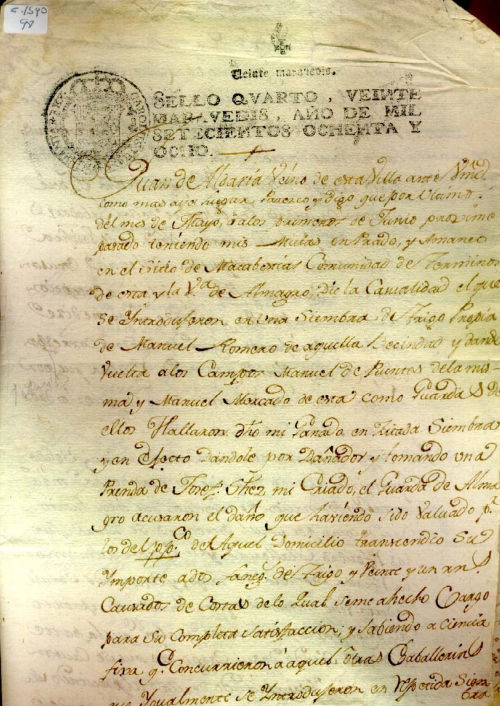 C-1590
Veinte maravedis.
SELLO QVARTO, VEINTE
MARAVEDIS, AÑO DE MIL
SETECIENTOS OCHENTA Y
OCHO.
Juan de Albaria Vecino de esta Villa ante Vmd
como mas aya lugar Parezco y Digo que por Ultimos
del mes de Mayo, a los primeros de Junio proximo
pasado teniendo mis Mulas en Prado, y Amaneo
en el sitio de Comunidad de Terminos
de esta y la Va. de Almagro, dio la Casualidad el que
se Yntrodujeron en una Siembra de Trigo Propia
de Manuel Romero de aquella Vecindad y dando
Vuelta a los Campos Manuel de Puentes de la mis-
ma y Manuel Mercado de esta como Guardas de
ellos Hallaron dho mi Ganado en zitada Siembra
y en Efecto dandole por Dañador y tomando una
Prenda de mi Criado, el Guarda de Alma
gro acusaron el daño que haviendo sido Valuado p.
los del de Aquel Domicilio transcendio su
Ymporte a dos faneg.s de Trigo y Veinte y un
Causados de Costas de lo Qual se me a hecho Cargo
para su Completa satisfaccion; y sabiendo a ciencia
fixa q.e Concurrieron a aquel otras Caballerias
que Ygualmente se Yntrodujeron en Siem
bra